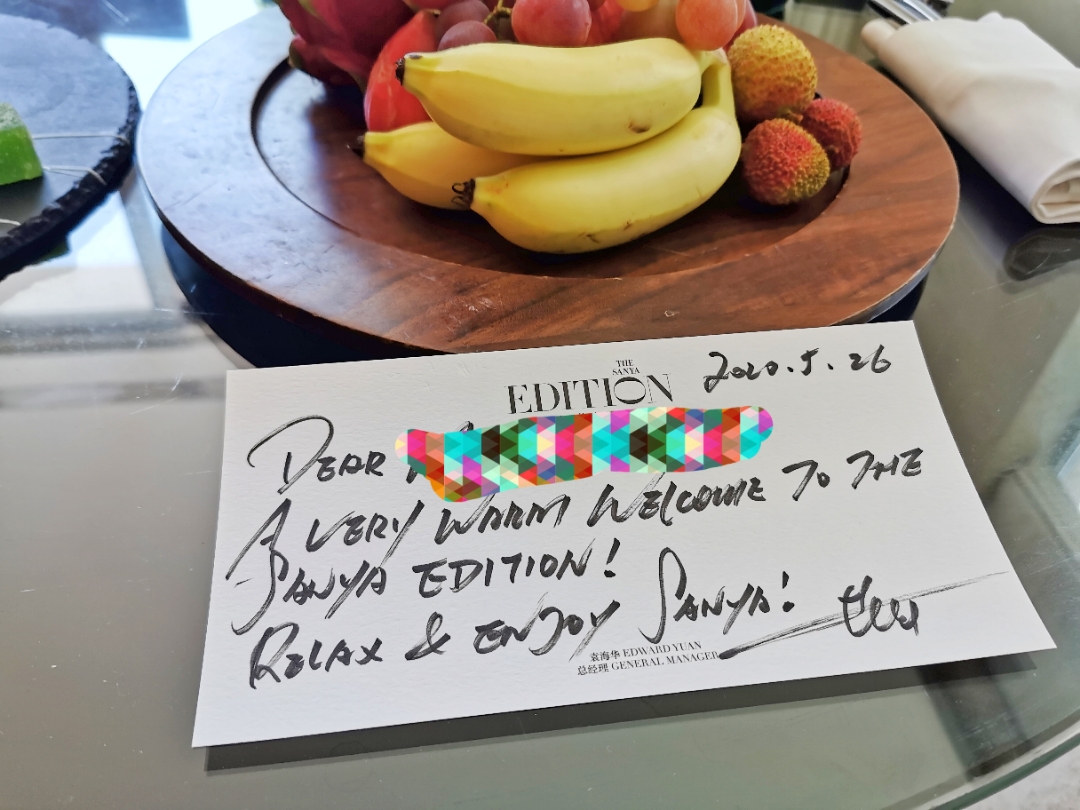 THE
SANYA
EDITION
2020.5.26
DEAR
A VERY WARM WELCOME TO THE
SANYA EDITION!
RELAX & ENJOY SANYA!
袁海华 EDWARD YUAN
总经理 GENERAL MANAGER